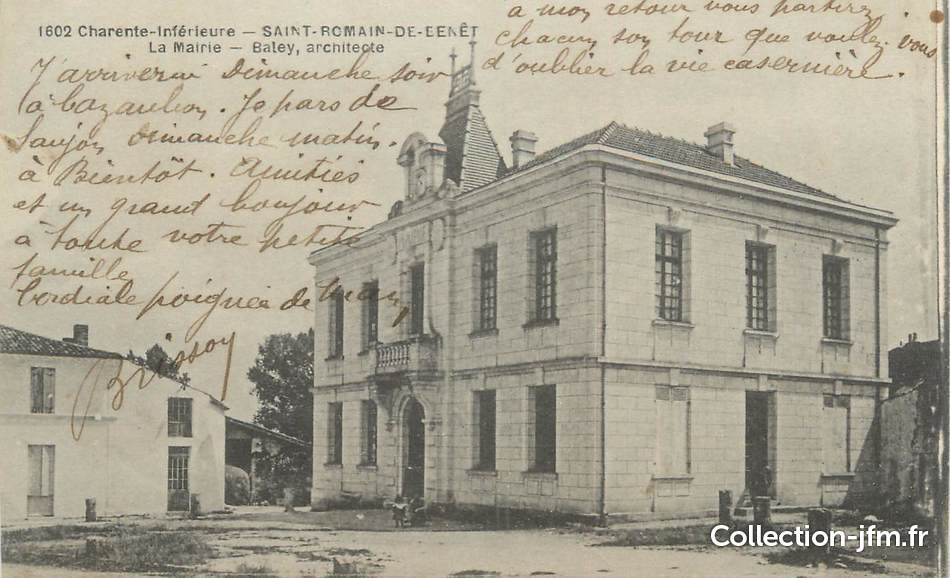 1602 Charente-Inférieure — SAINT-ROMAIN-DE-BENÊT
La Mairie — Baley, architecte
J'arriverai Dimanche soir
à Cazaubon. Je pars de
Saujon Dimanche matin.
à Bientôt. Amitiés
et un grand bonjour
à toute votre petite
famille
Cordiale poignée de main
Brissoy
à mon retour vous partirez
chacun son tour que voulez vous
d'oublier la vie casernière.
Collection-jfm.fr